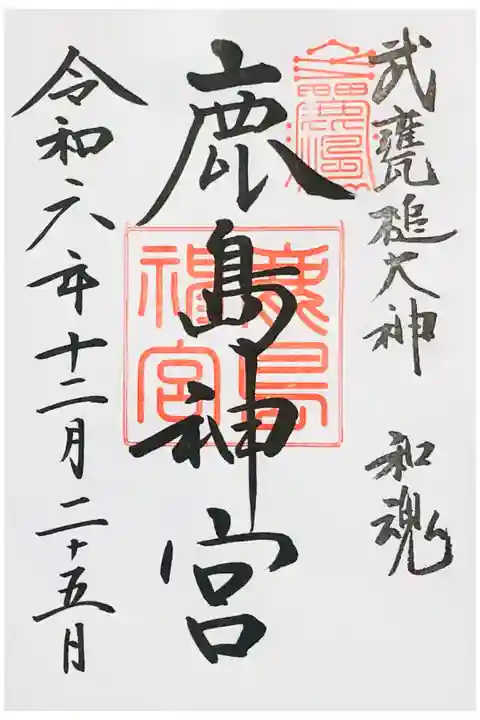 武甕槌大神　和魂
鹿島神宮
鹿島
神宮
令和六年十二月二十五日